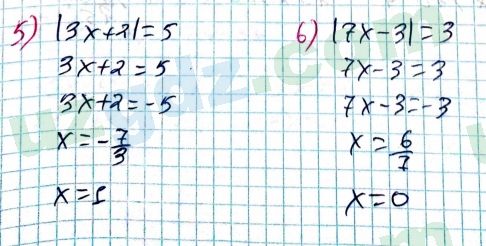 5) |3x+2|=5
3x+2=5
3x+2=-5
x=-7/3
x=1
6) |7x-3|=3
7x-3=3
7x-3=-3
x=6/7
x=0